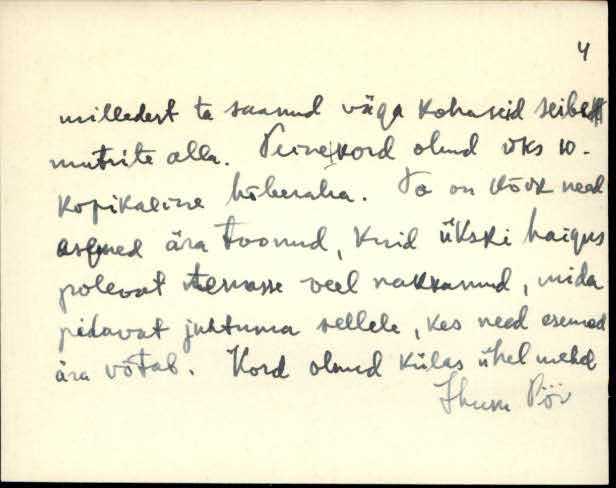 4
milledest ta saanud väga kohaseid seibe
mutrite alla. Teinekord olnud üks 10-
kopikaline hõberaha. Ta on kõik need
asemed ära toonud, kuid ükski haigus
polevat temasse veel nakkanud, mida
pidavat juhtuma sellele, kes need esemed
ära võtab. Kord olnud külas ühel mehel